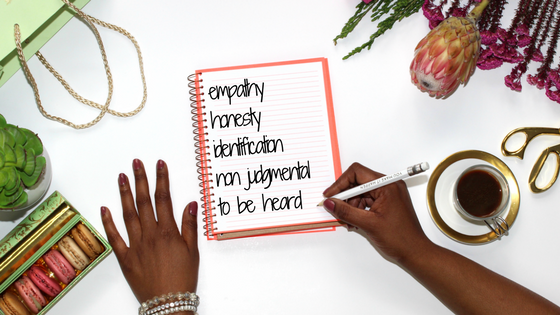 empathy
honesty
identification
non judgmental
to be heard